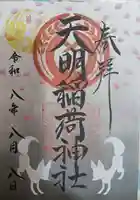 奉拝
天明稲荷神社
令和八年八月八日